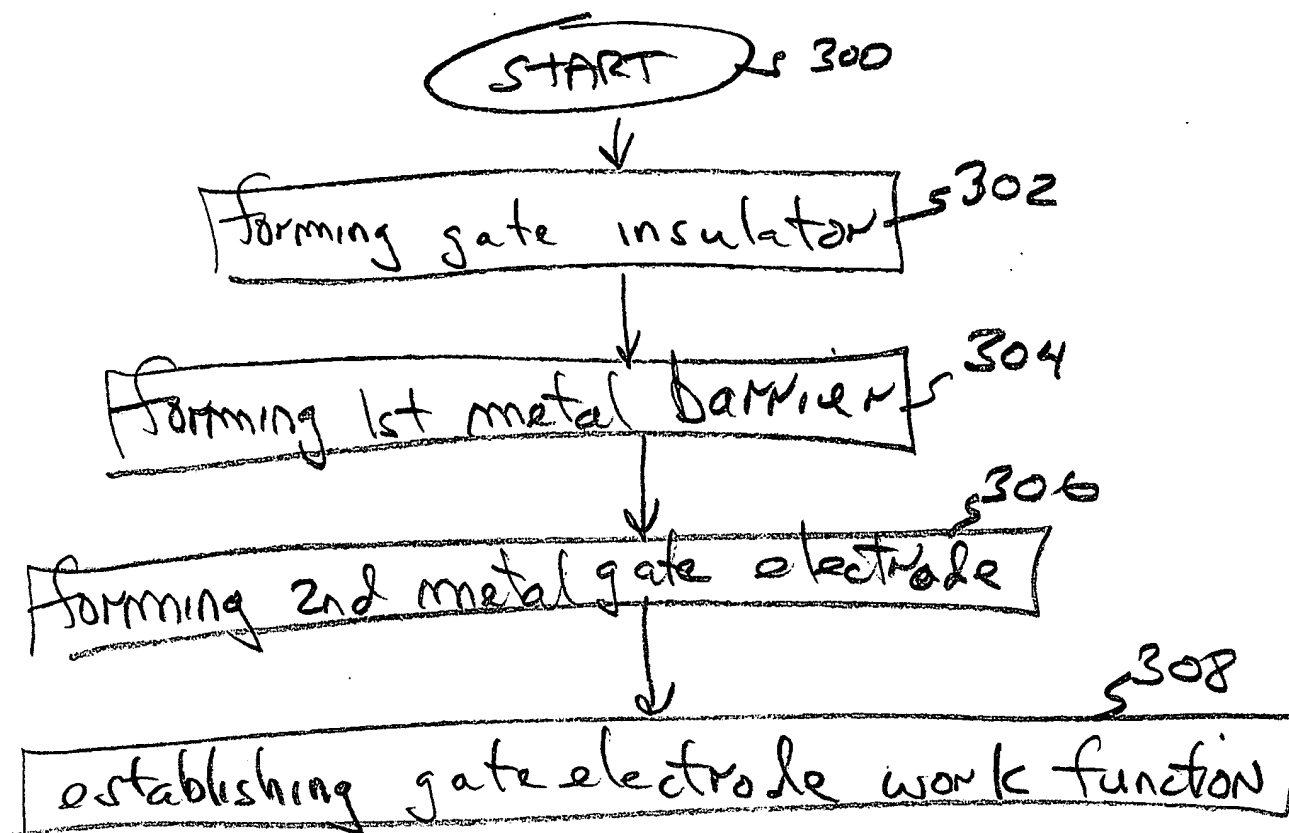 START 300
forming gate insulator 302
forming 1st metal barrier 304
306
forming 2nd metal gate electrode
308
establishing gate electrode work function